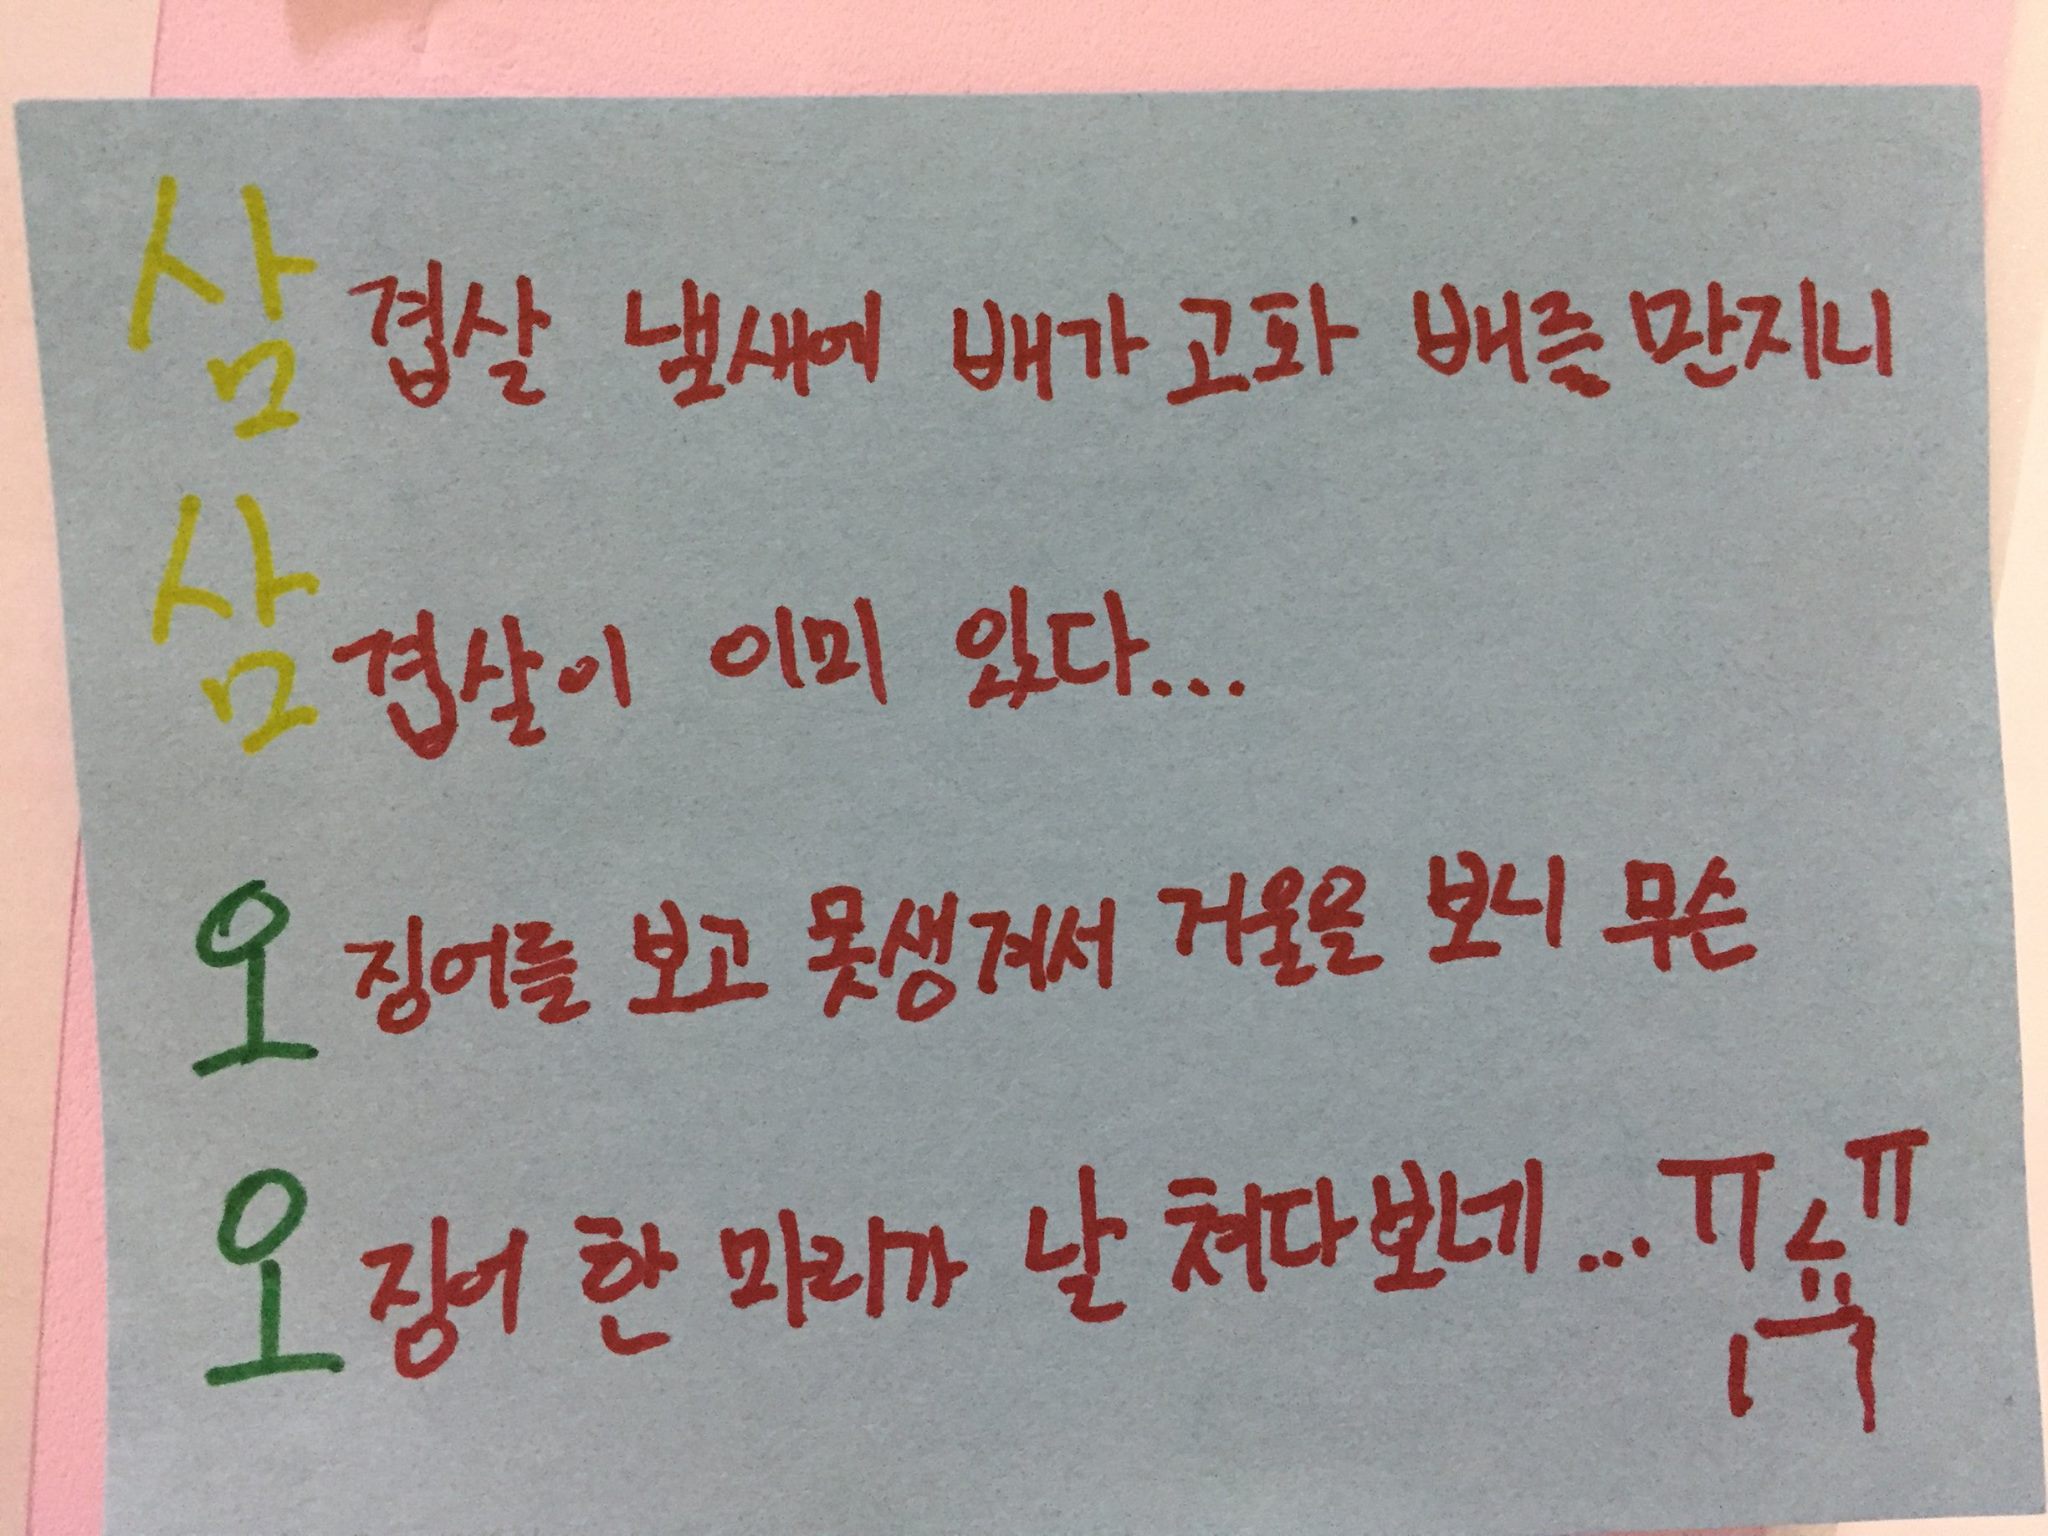 삼겹살 냄새에 배가 고파 배를 만지니
삼겹살이 이미 있다...
오징어를 보고 못생겨서 거울을 보니 무슨
오징어 한 마리가 날 쳐다보네...ㅠㅠ